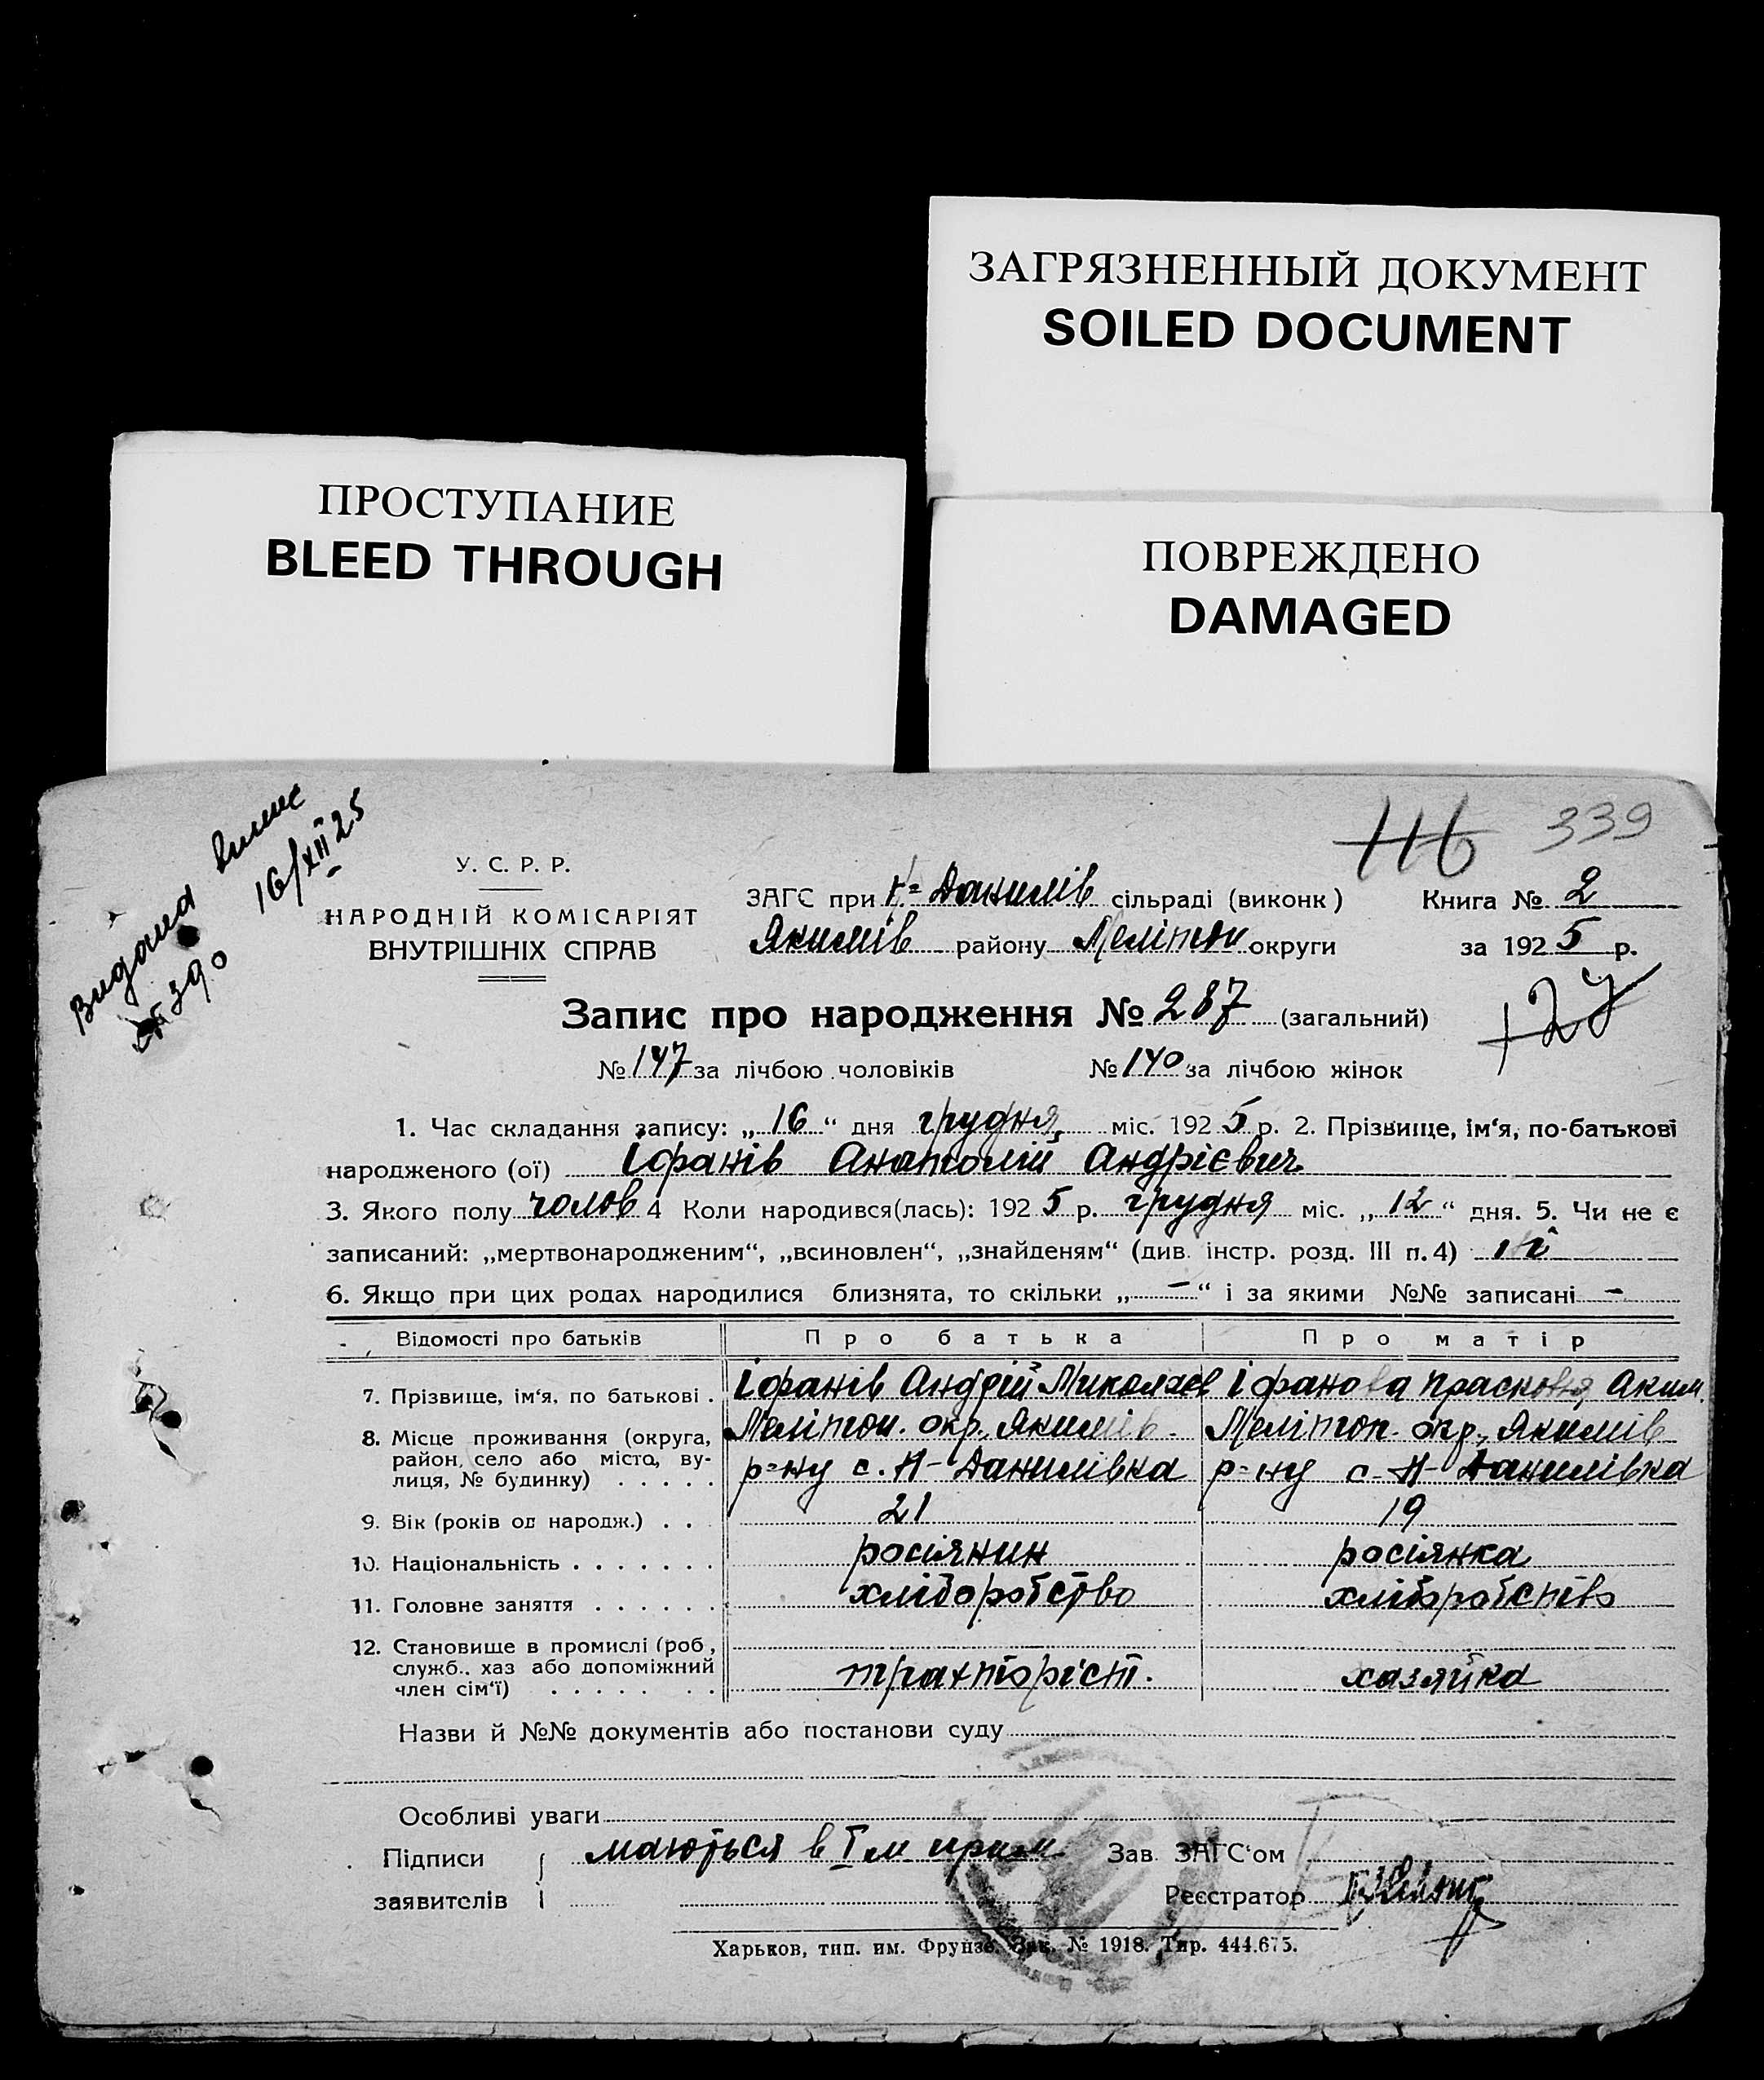 ЗАГРЯЗНЕННЫЙ ДОКУМЕНТ
SOILED DOCUMENT
ПРОСТУПАНИЕ
BLEED THROUGH
ПОВРЕЖДЕНО
DAMAGED
Видана
16/XII 25
390
116 339
У. С. Р. Р.
НАРОДНІЙ КОМІСАРІЯТ
ВНУТРІШНІХ СПРАВ
ЗАГС при Данилів сільраді (виконк) Книга № 2
Якимів району Меліпоп округи за 1925 р.
Запис про народження № 287 (загальний)
127
№ 147 за лічбою чоловіків № 140 за лічбою жінок
1. Час складання запису: „16“ дня грудня міс. 1925 р. 2. Прізвище, ім‘я, по-батькові
народженого (ої) Іфанів Анатолій Андрієвич
3. Якого полу чолов 4 Коли народився(лась): 1925 р. грудня міс. „12“ дня. 5. Чи не є
записаний: „мертвонародженим“, „всиновлен“, „знайденям“ (див. інстр. розд. III п. 4) ні
6. Якщо при цих родах народилися близнята, то скільки „—“ і за якими №№ записані —
Відомості про батьків Про батька Про матір
7. Прізвище, ім‘я, по батькові . Іфанів Андрій Миколаєв Іфанова Прасковія Аким.
8. Місце проживання (округа, район, село або місто, вулиця, № будинку) . . . . .
Меліпоп. окр., Якимів Меліпоп. окр., Якимів
р=ну с. Н-Данилівка р=ну с. Н-Данилівка
9. Вік (років од народж.) . . 21 19
10. Національність . . . . . . . росіянин росіянка
11. Головне заняття . . . . . . хліборобство хліборобство
12. Становище в промислі (роб, служб.. хаз або допоміжний член сім‘ї) . . . . . . . тракторіст. хазяйка
Назви й №№ документів або постанови суду
Особливі уваги
Підписи маються в I м прим Зав. ЗАГС‘ом
заявителів Реєстратор
Харьков, тип. им. Фрунзе. Зак. № 1918. Тир. 444.675.